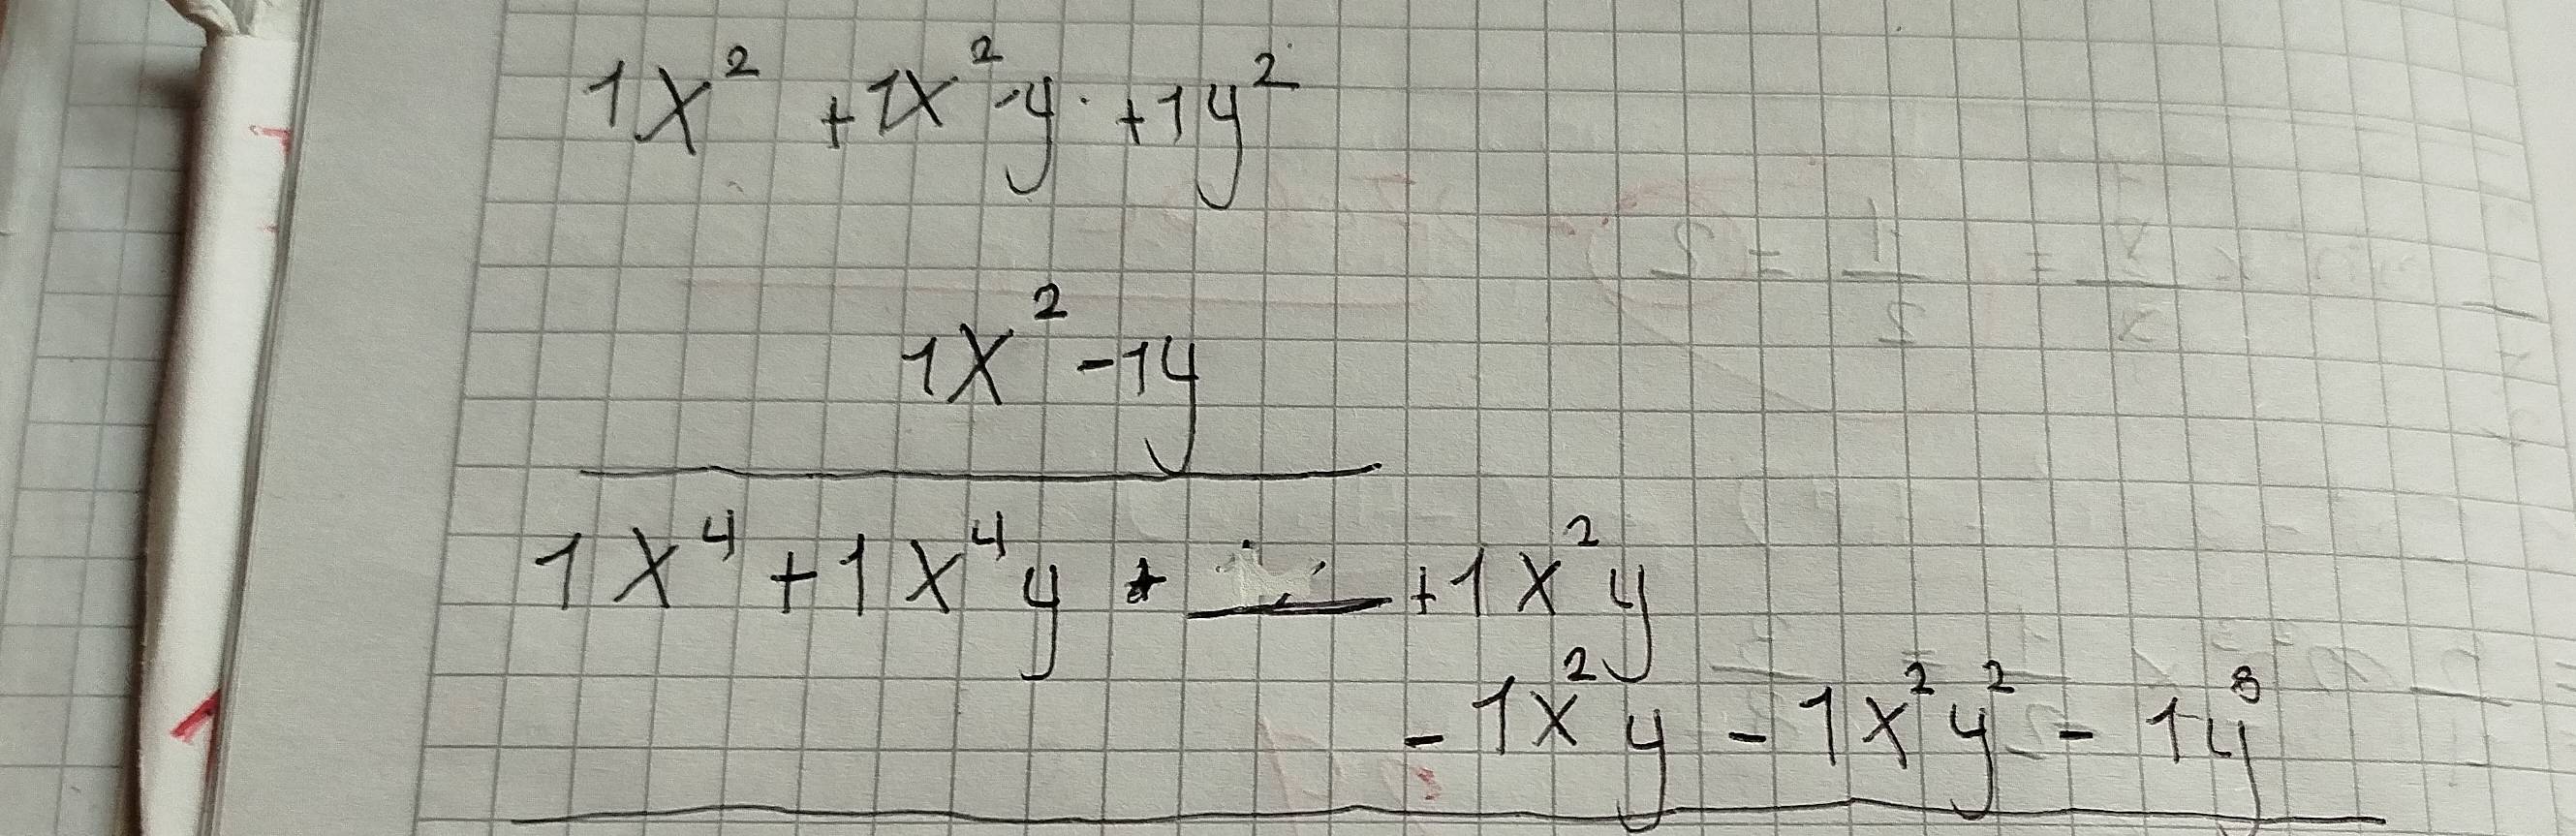 1x² +1x²-y +1y²
1x² -1y
1x⁴ +1x⁴y + +1x²y
-1x²y -1x²y² - 1y³